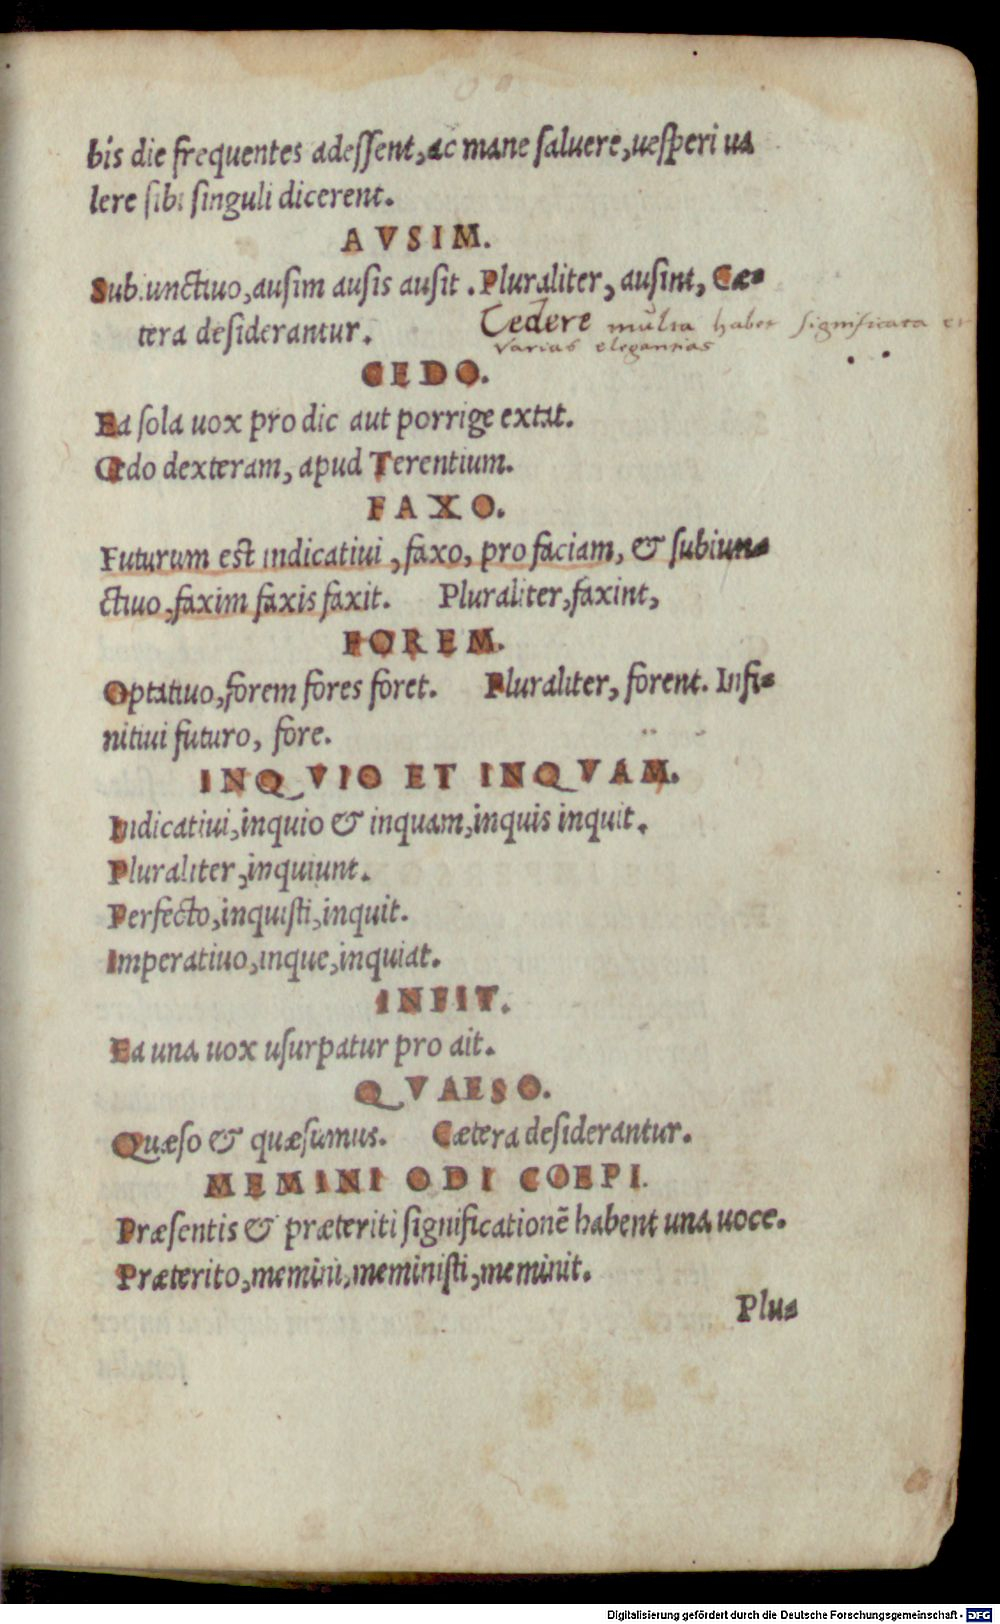 bis die frequentes adessent, ac mane saluere, uesperi ua
lere sibi singuli dicerent.
AVSIM.
Subiunctiuo, ausim ausis ausit. Pluraliter, ausint, Cæ-
tera desiderantur.
Cedere multa habet significata et
varias elegantias
CEDO.
Ea sola uox pro dic aut porrige extat.
Cedo dexteram, apud Terentium.
FAXO.
Futurum est indicatiui, faxo, pro faciam, & subiun-
ctiuo, faxim faxis faxit. Pluraliter, faxint,
FOREM.
Optatiuo, forem fores foret. Pluraliter, forent. Infi-
nitiui futuro, fore.
INQVIO ET INQVAM.
Indicatiui, inquio & inquam, inquis inquit.
Pluraliter, inquiunt.
Perfecto, inquisti, inquit.
Imperatiuo, inque, inquiat.
INFIT.
Ea una uox usurpatur pro ait.
QVAESO.
Quæso & quæsumus. Cætera desiderantur.
MEMINI ODI COEPI.
Præsentis & præteriti significationē habent una uoce.
Præterito, memini, meministi, meminit.
Plu-
Digitalisierung gefördert durch die Deutsche Forschungsgemeinschaft - DFG